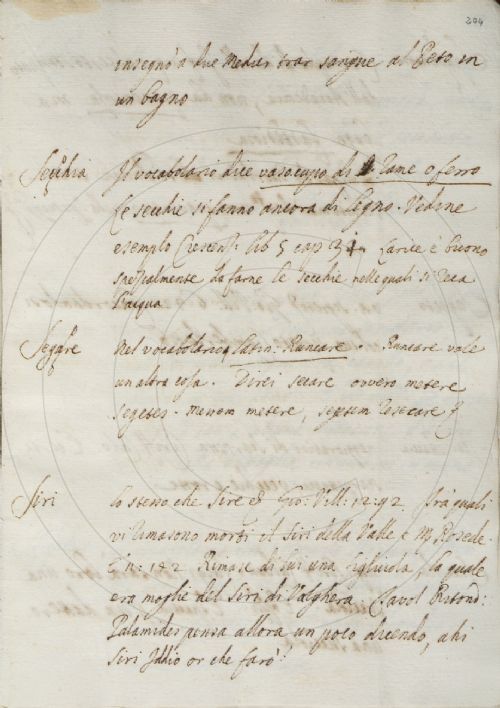 204
insegnò a due Medici trar sangue al Reto in
un bagno
Secchia Il vocabolario dice vaso cupo di Rame o ferro
le secchie si fanno ancora di legno. Vedine
esempio Crescenz. lib 5 cap 31. Larice è buono
spezialmente da farne le secchie nelle quali si reca
l'acqua
Segare Nel vocabolario, latin: Runcare. Runcare vale
un'altra cosa. Direi secare ovvero metere
segetes. messem metere, sepem resecare
Siri lo stesso che Sire & Gio: Vill: 12: 92 fra quali
vi rimasono morti il Siri della Valle e
182 Rimase di lui una figliuola, la quale
era moglie del Siri di Valghera Tavol Ritond:
Palamides pensa allora un poco dicendo, ahi
Siri Iddio or che farò